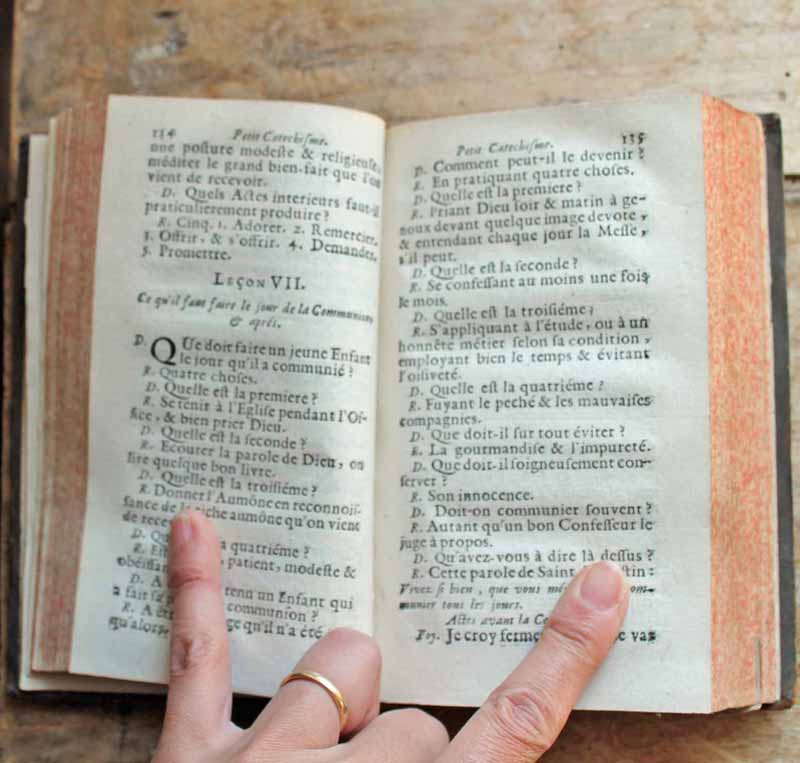 134 Petit Catechiſme.
une poſture modeſte & religieuſe,
méditer le grand bien-fait que l'on
vient de recevoir.
D. Quels Actes interieurs faut-il
praticulierement produire ?
R. Cinq. 1. Adorer. 2. Remercier.
3. Offrir, & s'offrir. 4. Demander.
5. Promettre.
LEÇON VII.
Ce qu'il faut faire le jour de la Communion
& aprés.
D. QUe doit faire un jeune Enfant
le jour qu'il a communié ?
R. Quatre choſes.
D. Quelle eſt la premiere ?
R. Se tenir à l'Egliſe pendant l'Of-
fice, & bien prier Dieu.
D. Quelle eſt la ſeconde ?
R. Ecouter la parole de Dieu, ou
lire quelque bon livre.
D. Quelle eſt la troiſiéme ?
R. Donner l'Aumône en reconnoiſ-
ſance de la riche aumône qu'on vient
de recev
D. Qu a quatriéme ?
R. patient, modeſte &
obéiſſan
D. A tenu un Enfant qui
a fait ſa communion ?
R. A ge qu'il n'a été
qu'alors
Petit Catechiſme. 135
D. Comment peut-il le devenir ?
R. En pratiquant quatre choſes.
D. Quelle eſt la premiere ?
R. Priant Dieu ſoir & matin à ge-
noux devant quelque image devote,
& entendant chaque jour la Meſſe,
s'il peut.
D. Quelle eſt la ſeconde ?
R. Se confeſſant au moins une fois
le mois.
D. Quelle eſt la troiſiéme ?
R. S'appliquant à l'étude, ou à un
honnête métier ſelon ſa condition,
employant bien le temps & évitant
l'oiſiveté.
D. Quelle eſt la quatriéme ?
R. Fuyant le peché & les mauvaiſes
compagnies.
D. Que doit-il ſur tout éviter ?
R. La gourmandiſe & l'impureté.
D. Que doit-il ſoigneuſement con-
ſerver ?
R. Son innocence.
D. Doit-on communier ſouvent ?
R. Autant qu'un bon Confeſſeur le
juge à propos.
D. Qu'avez-vous à dire là deſſus ?
R. Cette parole de Saint tin :
Vivez ſi bien, que vous mé com-
munier tous les jours.
Actes avant la Co
Foy. Je croy ferme e va